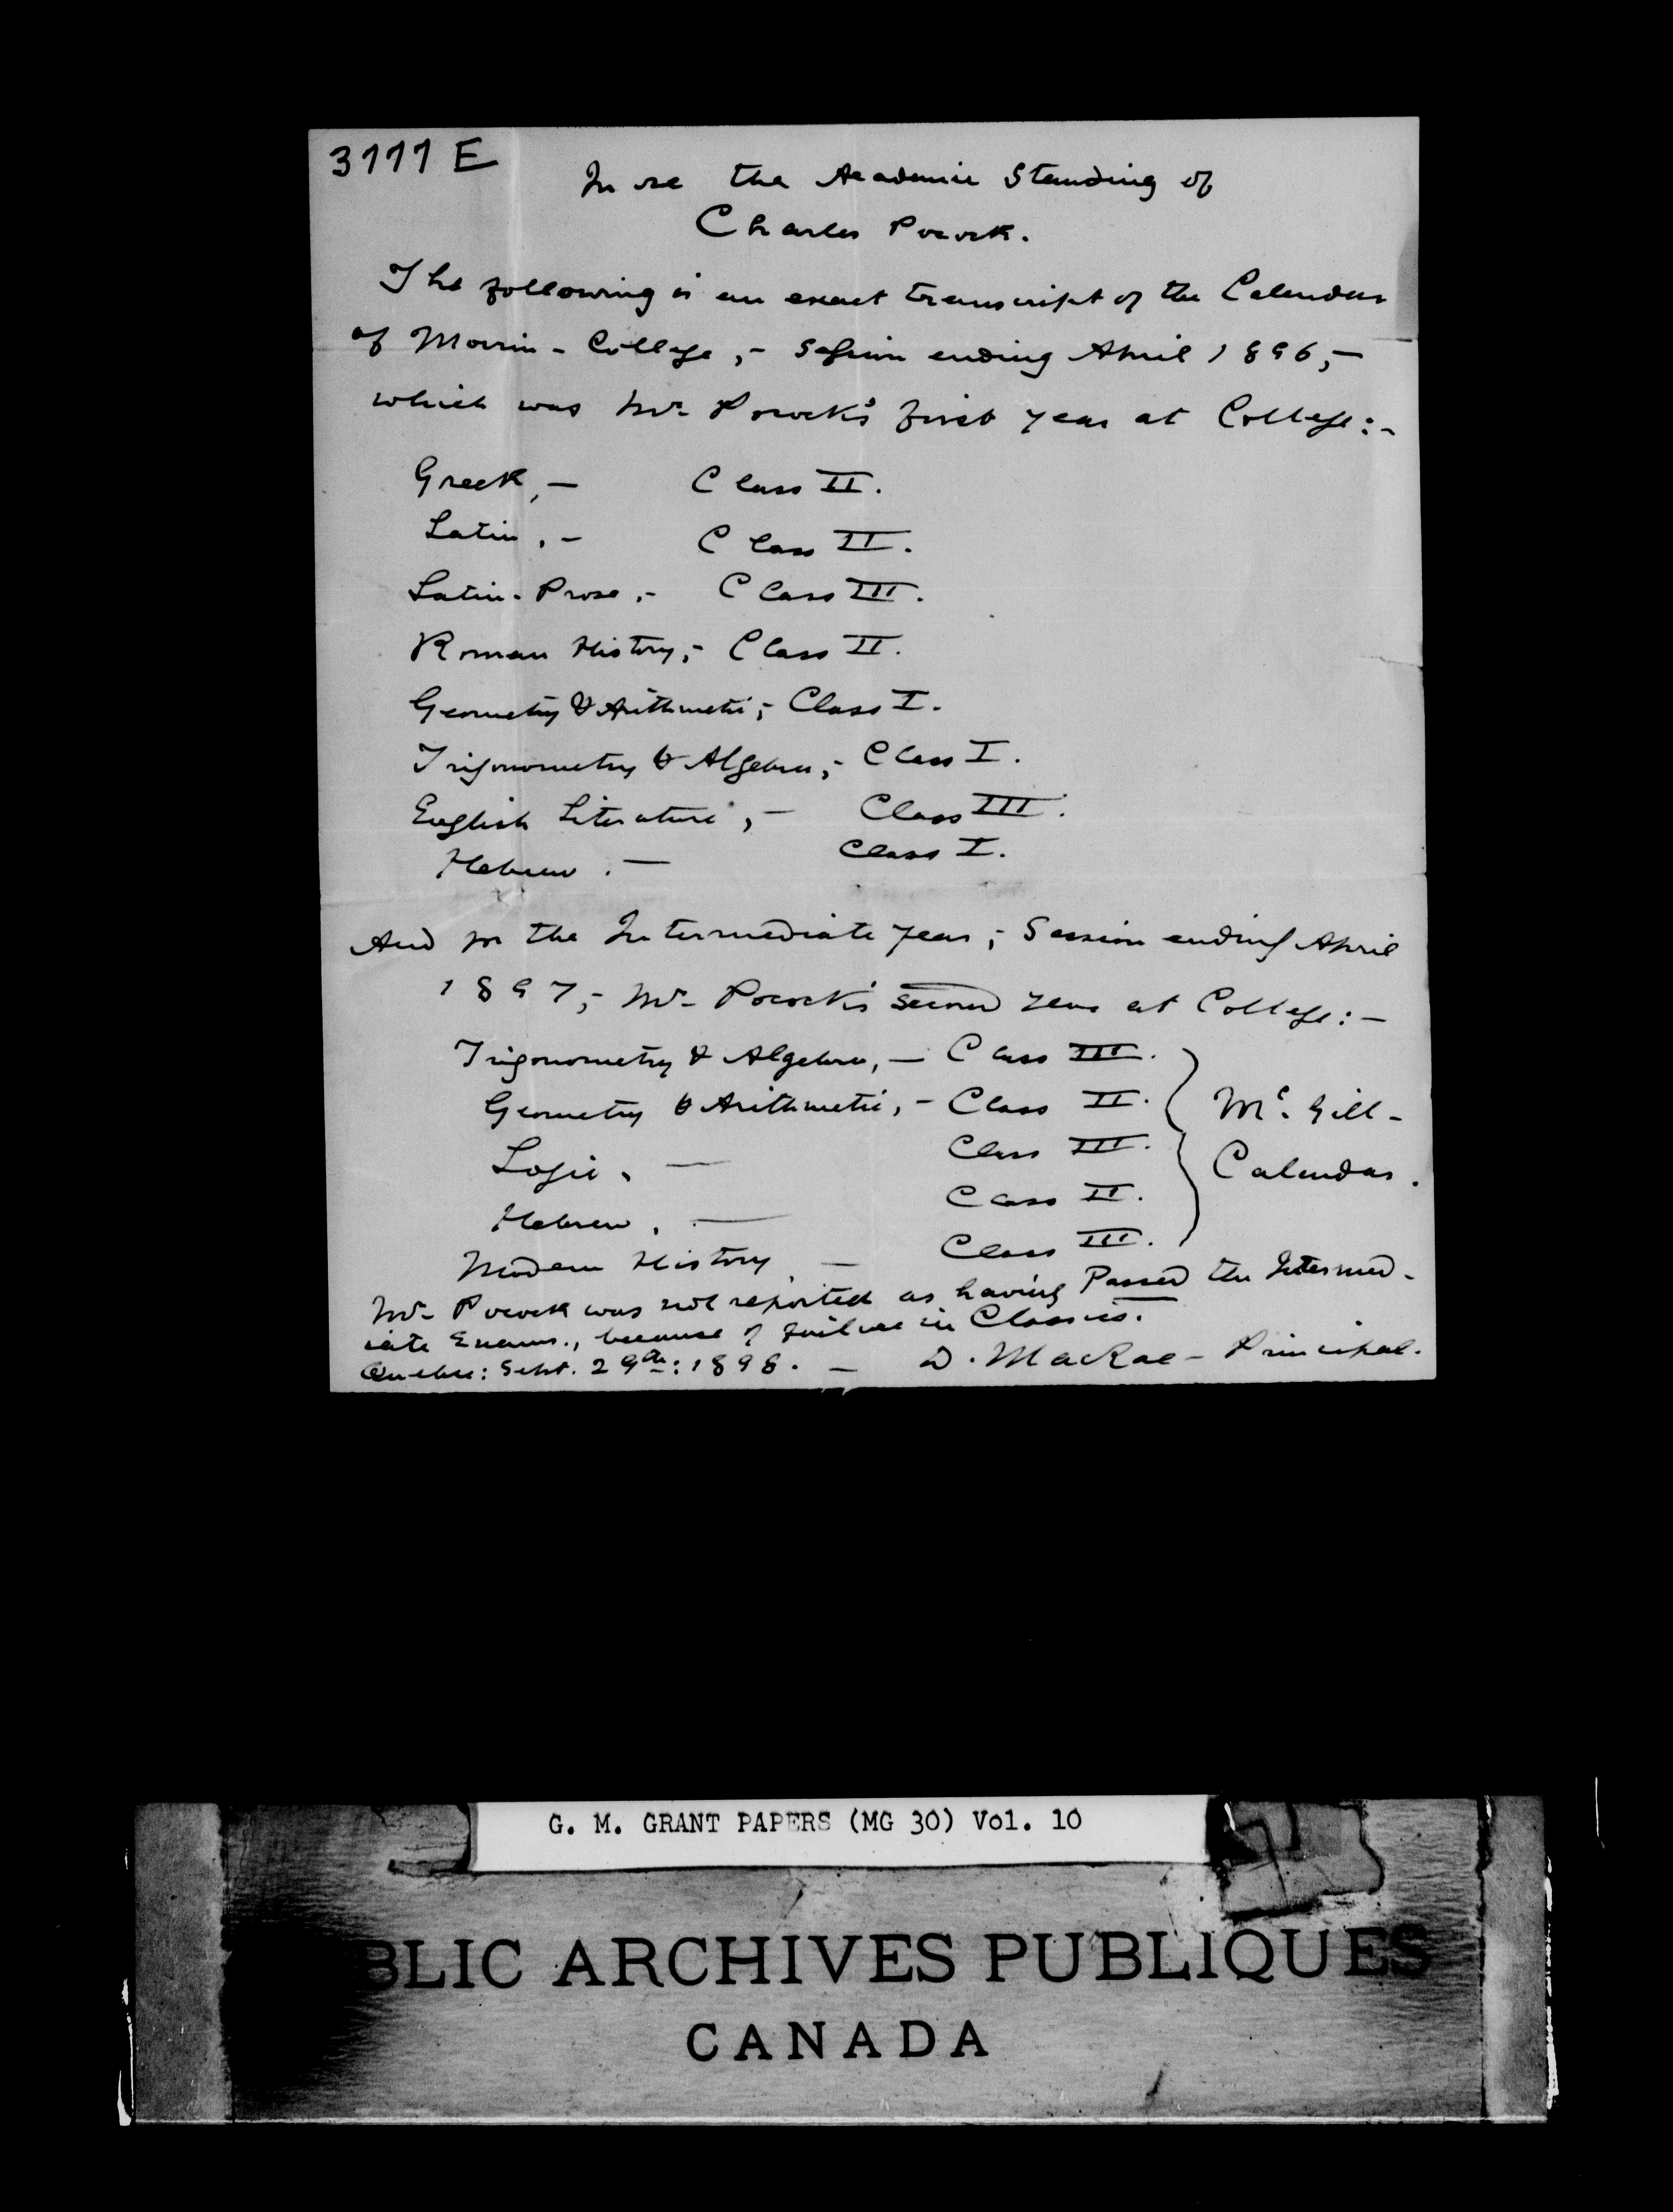 3111 E
In re the Academic Standing of
Charles Pocock.
The following is an exact transcript of the Calendar
of Morrin - College, - Session ending April 1896, -
which was Mr Pocock's first year at College: -
Greek, - Class II.
Latin, - Class II.
Latin - Prose, - Class III.
Roman History, - Class II.
Geometry & Arithmetic, - Class I.
Trigonometry & Algebra, - Class I.
English Literature, - Class III.
Hebrew. - Class I.
And for the Intermediate year, - Session ending April
1897, - Mr Pocock's second year at College: -
Trigonometry & Algebra, - Class III.
Geometry & Arithmetic, - Class II.
Logic. - Class III.
Hebrew. - Class II.
Modern History - Class III.
Mc. Gill -
Calendar.
Mr Pocock was not reported as having Passed the Intermed-
iate Exams., because of failure in Classics.
Quebec: Sept. 29th: 1898. - D. MacRae - Principal.
G. M. GRANT PAPERS (MG 30) Vol. 10
BLIC ARCHIVES PUBLIQUES
CANADA